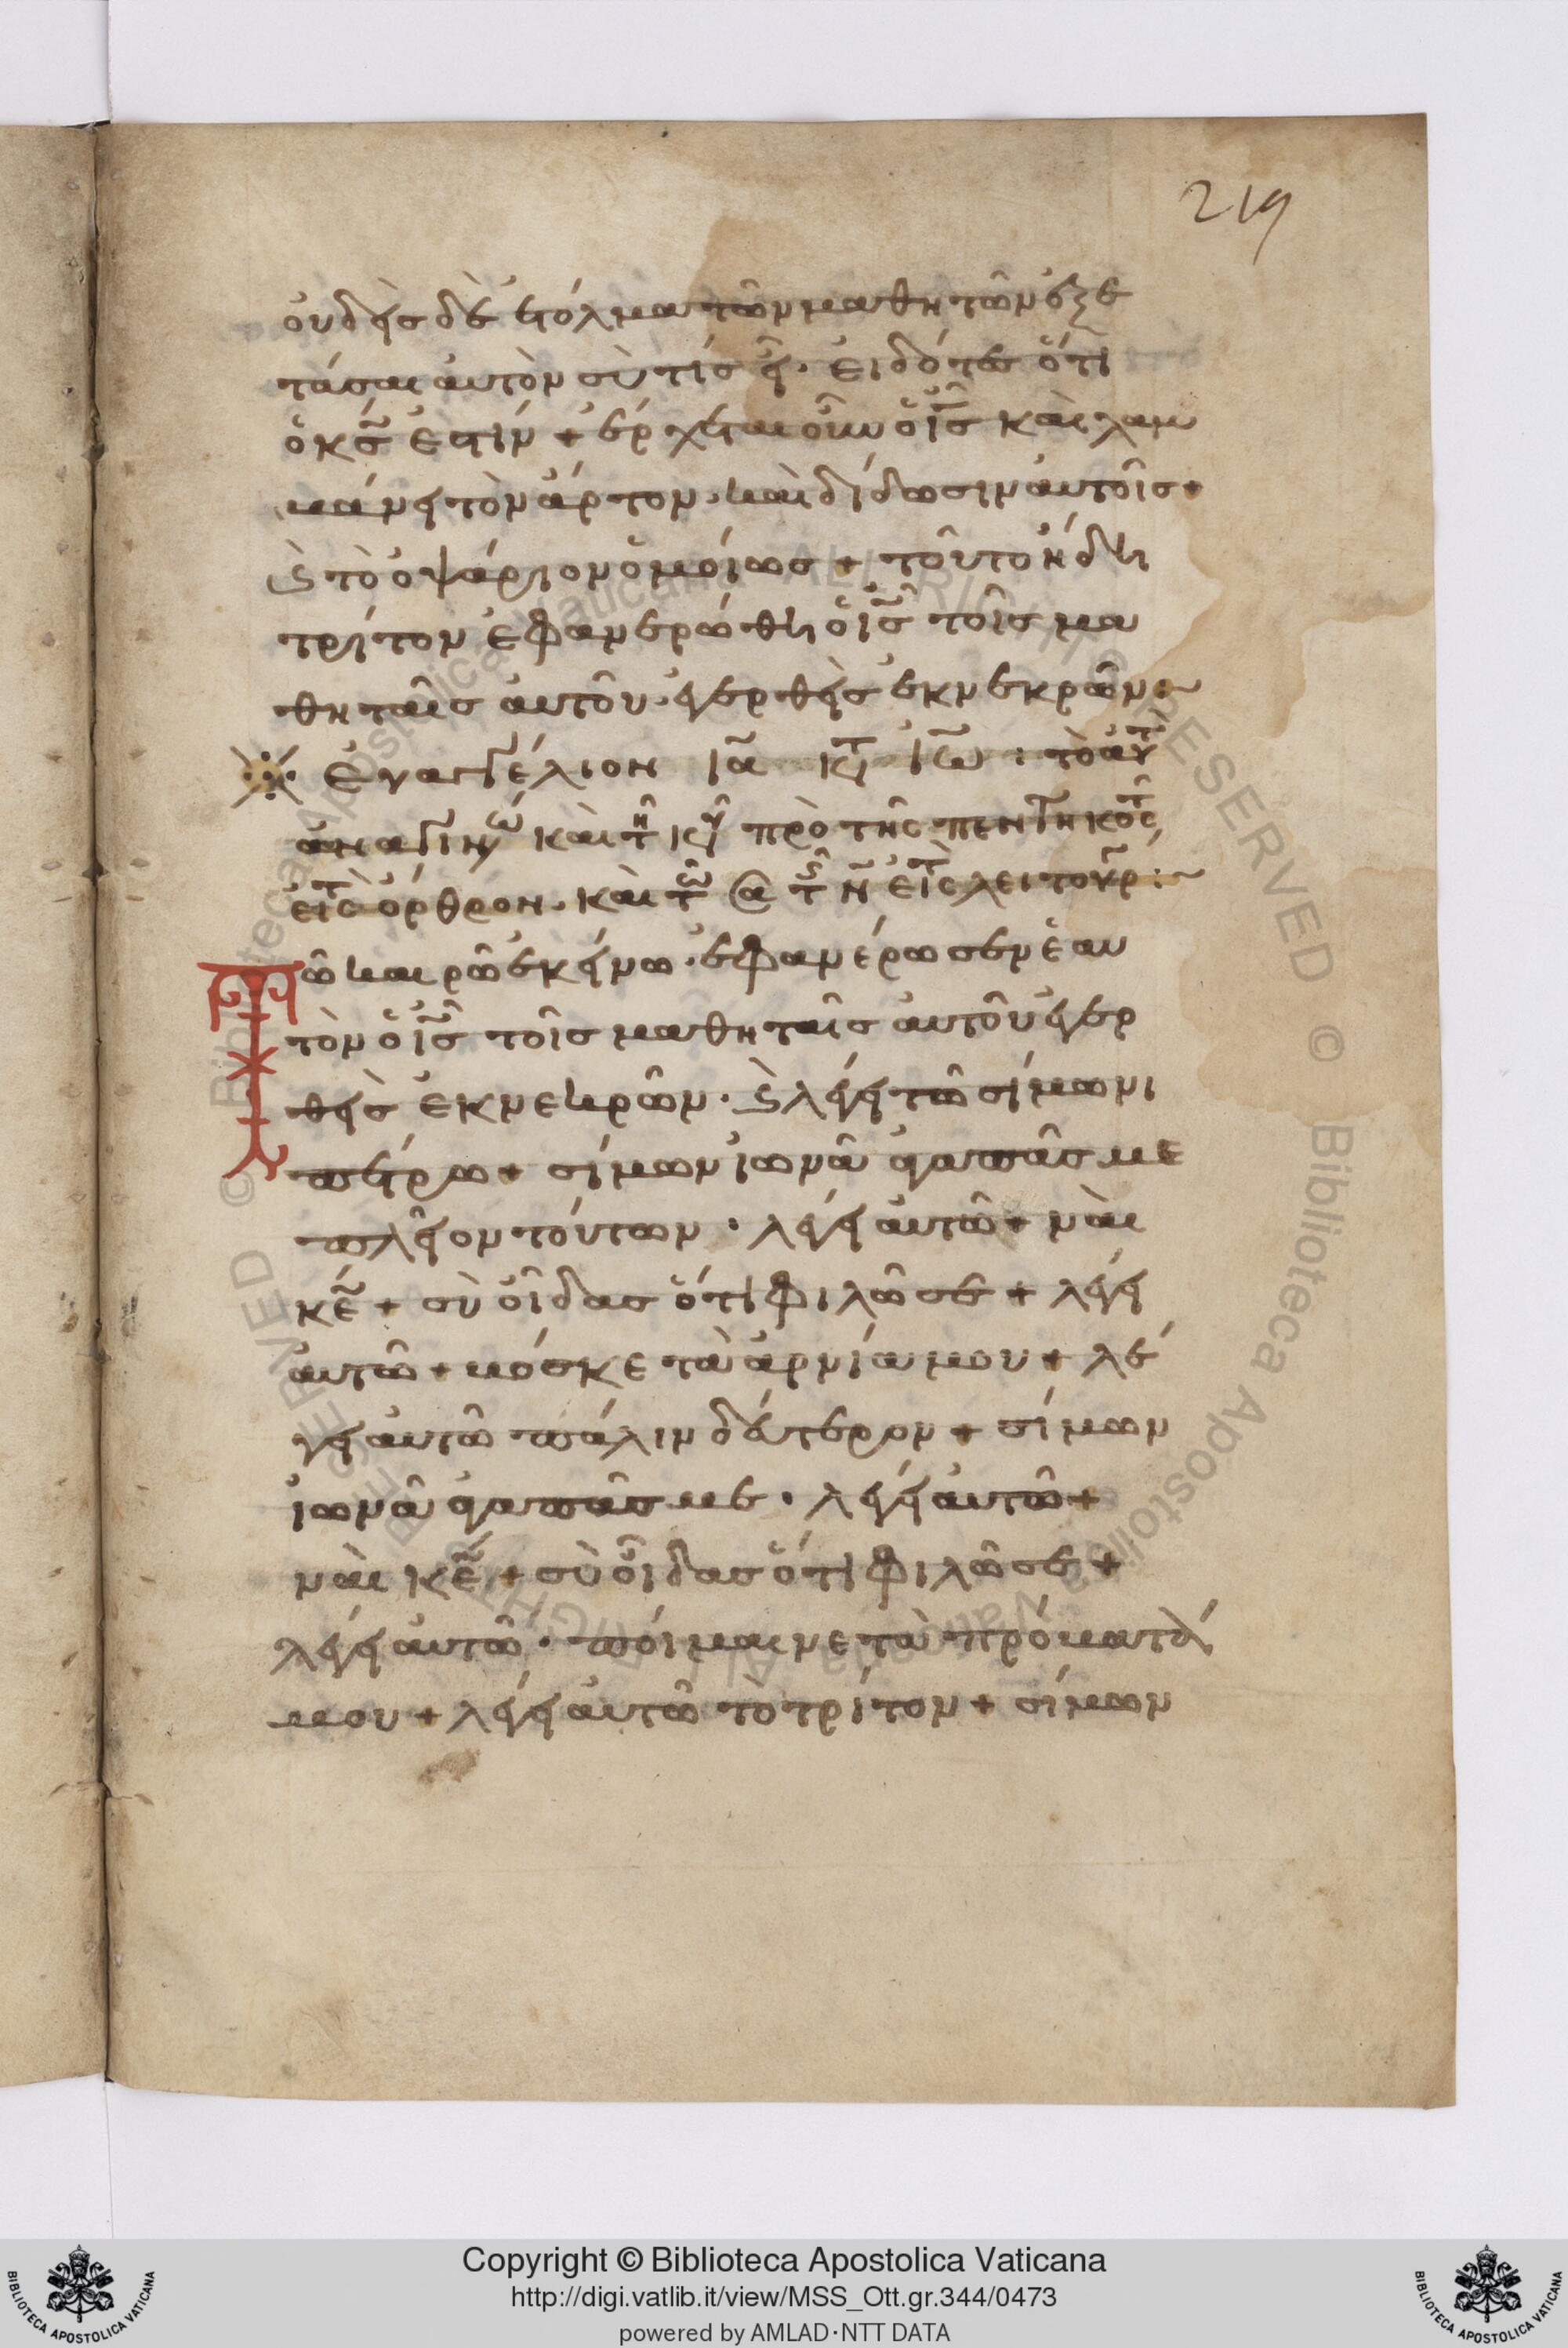 219
οὐδεὶς δὲ ἐτόλμα τῶν μαθητῶν ἐξε
τάσαι αὐτὸν σὺ τίς εἶ· εἰδότες ὅτι
ὁ κς ἐστίν + ἔρχεται οὖν ὁ ις καὶ λαμ
βάνει τὸν ἄρτον· καὶ δίδωσιν αὐτοῖς +
ϗ τὸ ὀψάριον ὁμοίως + τοῦτο ἤδη
τρίτον ἐφανερώθη ὁ ις τοῖς μα
θηταῖς αὐτοῦ· ἐγερθεὶς ἐκ νεκρῶν :~
Εὐαγγέλιον ια κτ ιω : τὸ αὐτ
ἀναγινω καὶ τη κυ πρὸ τῆς πεντηκοστ
εἰς τ ὄρθρον· καὶ τω α τς ν εἰς τ λειτουρ :~
Τῶ καιρῶ ἐκείνω· ἐφανέρωσεν ἑαυ
τὸν ὁ ις τοῖς μαθηταῖς αὐτοῦ ἐγερ
θεὶς ἐκ νεκρῶν· ϗ λέγει τῶ σίμωνι
πέτρω + σίμων ἰωνᾶ ἀγαπᾶς με
πλεῖον τούτων· λέγει αὐτῶ + ναὶ
κε + σὺ οἶδας ὅτι φιλῶ σε + λέγει
αὐτῶ + βόσκε τὰ ἀρνία μου + λέ
γει αὐτῶ πάλιν δεύτερον + σίμων
ἰωνᾶ ἀγαπᾶς με· λέγει αὐτῶ +
ναὶ κε + σὺ οἶδας ὅτι φιλῶ σε +
λέγει αὐτῶ· ποίμαινε τὰ πρόβατά
μου + λέγει αὐτῶ τὸ τρίτον + σίμων
Copyright © Biblioteca Apostolica Vaticana
http://digi.vatlib.it/view/MSS_Ott.gr.344/0473
powered by AMLAD·NTT DATA
BIBLIOTECA APOSTOLICA VATICANA
BIBLIOTECA APOSTOLICA VATICANA